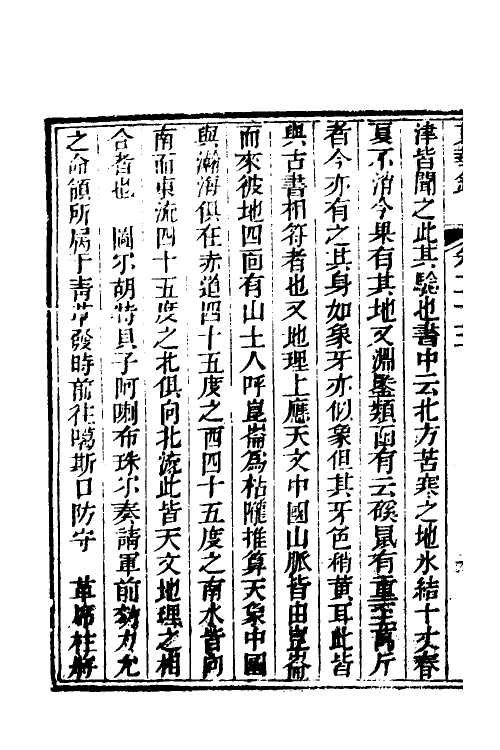 東華錄 卷二十二
津皆聞之此其驗也書中云北方苦寒之地氷結十丈春
夏不消今果有其地又淵鑒類函有云磎鼠有重至萬斤
者今亦有之其身如象牙亦似象但其牙色稍黃耳此皆
與古書相符者也又地理上應天文中國山脈皆由崑崙
而來彼地四面有山土人呼崑崙爲枯隴推算天象中國
與瀚海俱在赤道四十五度之西四十五度之南水皆向
南而東流四十五度之北俱向北流此皆天文地理之相
合者也 圖尔胡特貝子阿喇布珠尔奏請軍前効力允
之命領所屬于青草發時前往噶斯口防守 革席柱將